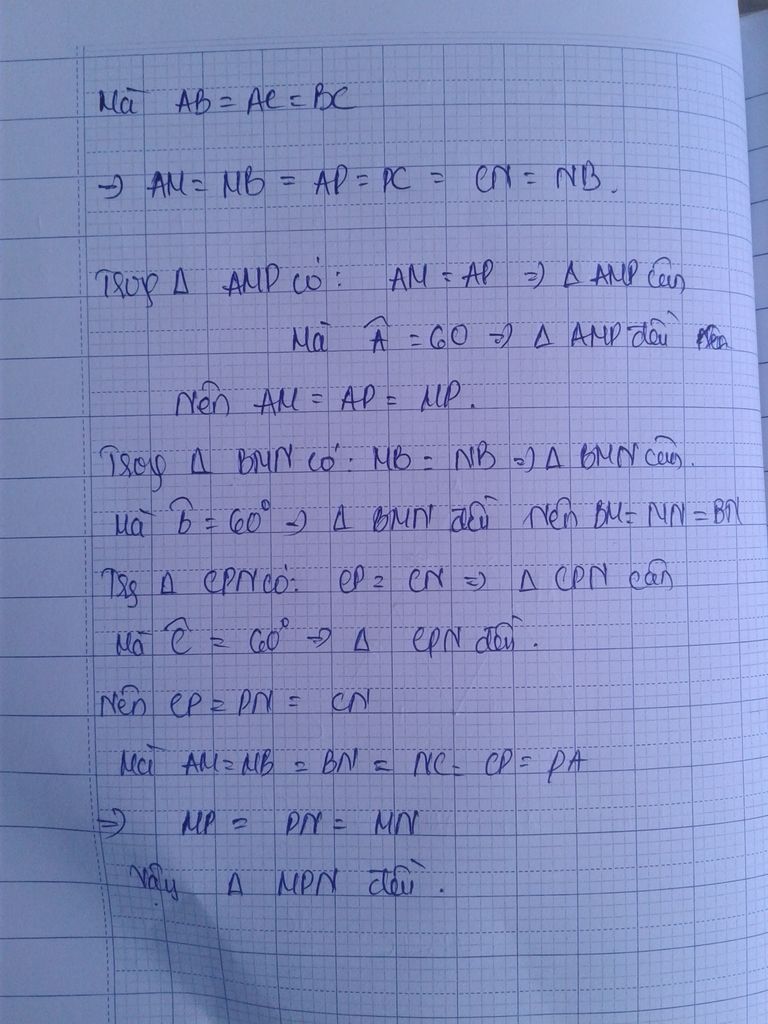 Mà AB = AC = BC
=> AM = MB = AP = PC = CN = NB.
Trong Δ AMP có: AM = AP => Δ AMP cân
Mà Â = 60 => Δ AMP đều
Nên AM = AP = MP.
Trong Δ BMN có: MB = NB => Δ BMN cân.
Mà B̂ = 60° => Δ BMN đều Nên BM = MN = BN
Trg Δ CPN có: CP = CN => Δ CPN cân
Mà Ĉ = 60° => Δ CPN đều.
Nên CP = PN = CN
Mà AM = MB = BN = NC = CP = PA
=> MP = PN = MN
Vậy Δ MPN đều.